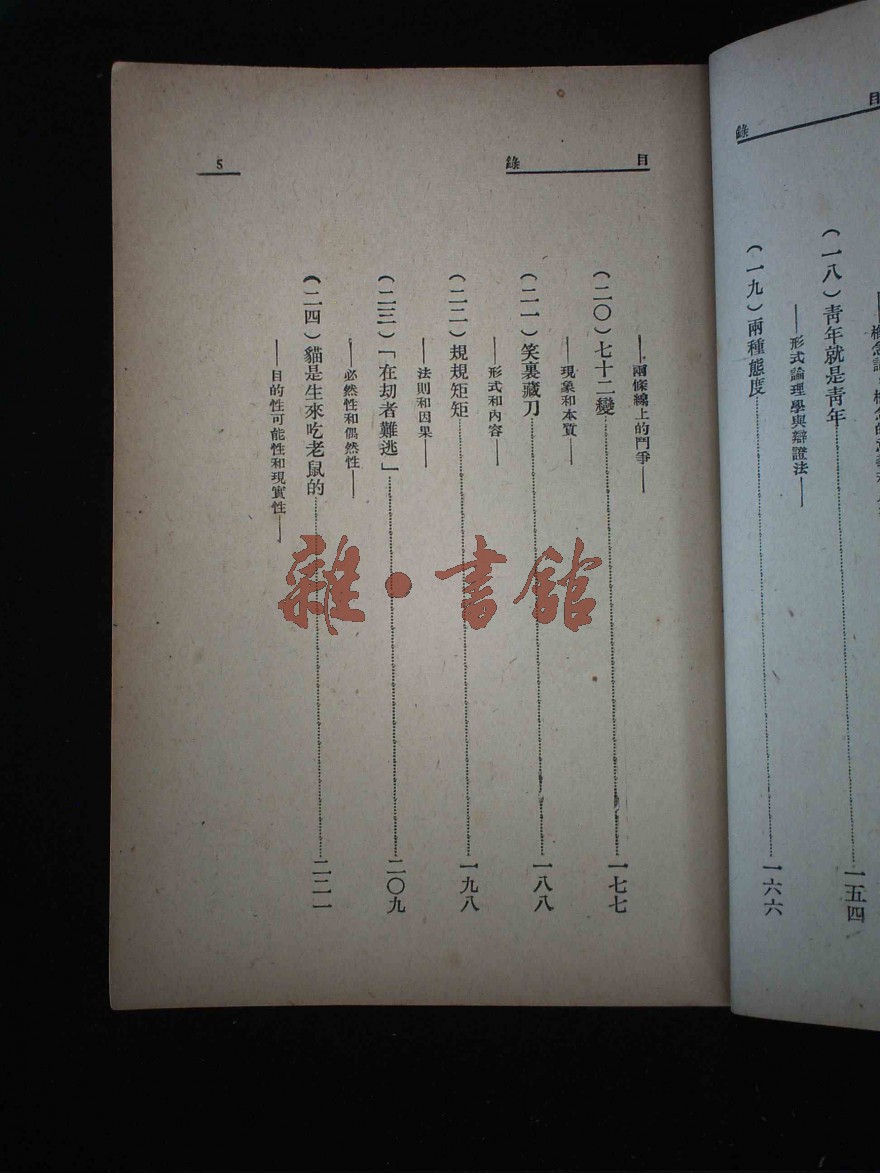 目錄
（一八）青年就是青年……一五四
——形式論理學與辯證法——
（一九）兩種態度……一六六
目錄
5
——兩條綫上的鬥爭——
（二〇）七十二變……一七七
——現象和本質——
（二一）笑裏藏刀……一八八
——形式和內容——
（二二）規規矩矩……一九八
——法則和因果——
（二三）「在劫者難逃」……二〇九
——必然性和偶然性——
（二四）貓是生來吃老鼠的……二二一
——目的性可能性和現實性——
雜·書館